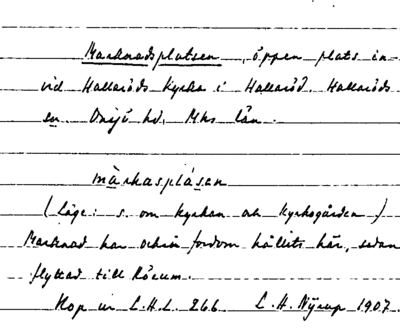 Marknadsplatsen, öppen plats in-
vid Hallaröds kyrka i Hallaröd. Hallaröds
sn Onsjö hd. Mhs län.
márkasplásen
(Läge: s. om kyrkan och kyrkogården)
Marknad har också fordom hållits här, sedan
flyttad till Röcum.
Kop ur L.H.L. 266. L. H. Nyrup 1907.